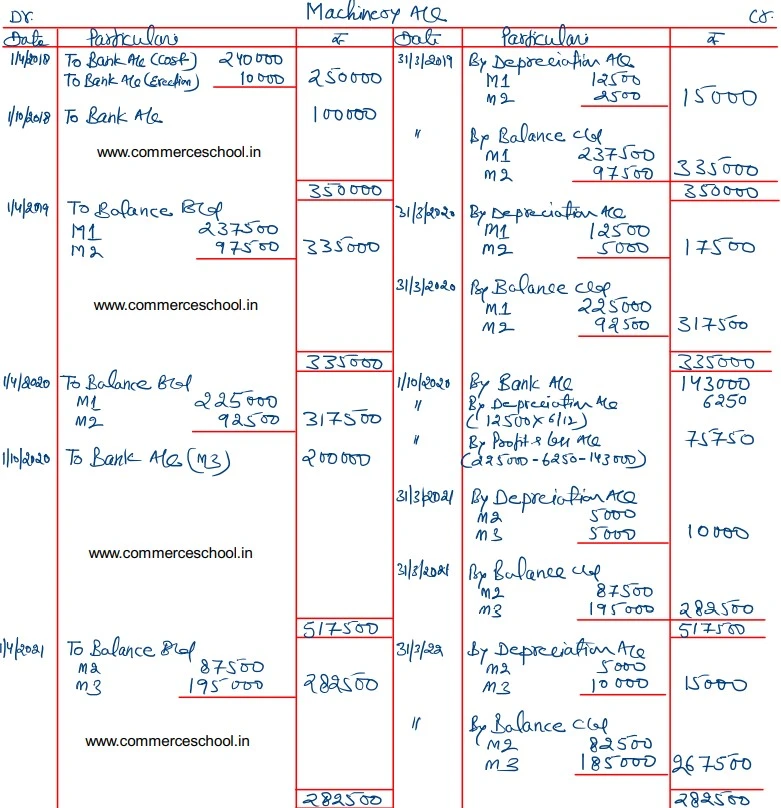 Dr. Machinery A/c Cr.
Date Particulars ₹ Date Particulars ₹
1/4/2018 To Bank A/c (Cost) 240000 31/3/2019 By Depreciation A/c
To Bank A/c (Erection) 10000 250000 M1 12500
M2 2500 15000
1/10/2018 To Bank A/c 100000
" By Balance c/d
www.commerceschool.in M1 237500
M2 97500 335000
350000 350000
1/4/2019 To Balance B/d 31/3/2020 By Depreciation A/c
M1 237500 M1 12500
M2 97500 335000 M2 5000 17500
31/3/2020 By Balance c/d
www.commerceschool.in M1 225000
M2 92500 317500
335000 335000
1/4/2020 To Balance B/d 1/10/2020 By Bank A/c 143000
M1 225000 " By Depreciation A/c 6250
M2 92500 317500 (12500X6/12)
" By Profit & loss A/c 75750
1/10/2020 To Bank A/c (M3) 200000 (225000-6250-143000)
31/3/2021 By Depreciation A/c
M2 5000
M3 5000 10000
www.commerceschool.in
31/3/2021 By Balance c/d
M2 87500
M3 195000 282500
517500 517500
1/4/2021 To Balance B/d 31/3/22 By Depreciation A/c
M2 87500 M2 5000
M3 195000 282500 M3 10000 15000
" By Balance c/d
www.commerceschool.in M2 82500
M3 185000 267500
282500 282500